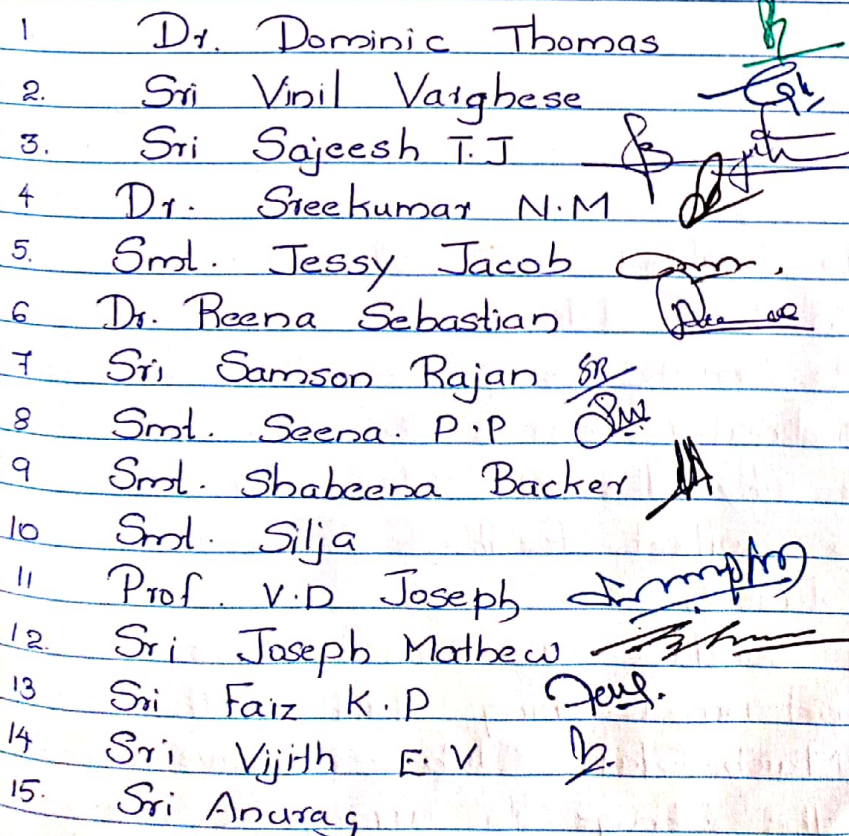 1 Dr. Dominic Thomas
2. Sri Vinil Varghese
3. Sri Sajeesh T.J
4 Dr. Sreekumar N.M
5. Smt. Jessy Jacob
6 Dr. Reena Sebastian
7 Sri Samson Rajan SR
8 Smt. Seena. P.P
9 Smt. Shabeena Backer
10 Smt. Silja
11 Prof. V.D Joseph
12. Sri Joseph Mathew
13 Sri Faiz K.P
14 Sri Vijith E.V
15. Sri Anurag